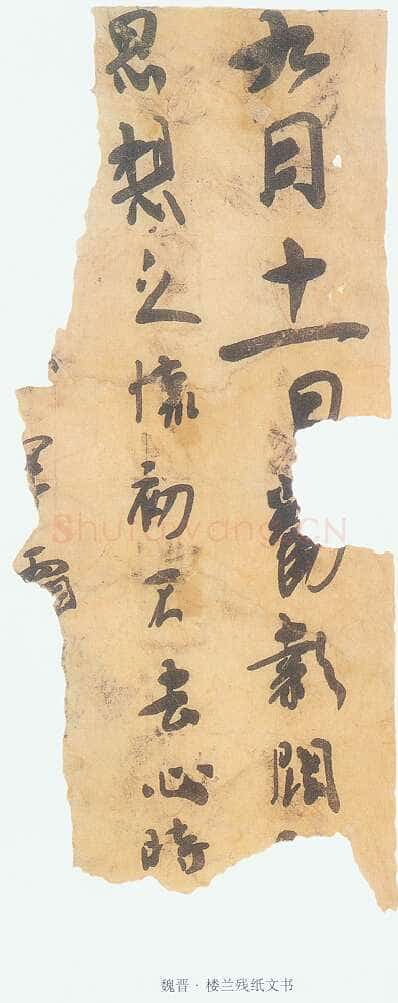 九月十一日
思想之懷初不去心時
Shufawang.CN
魏晋·楼兰残纸文书